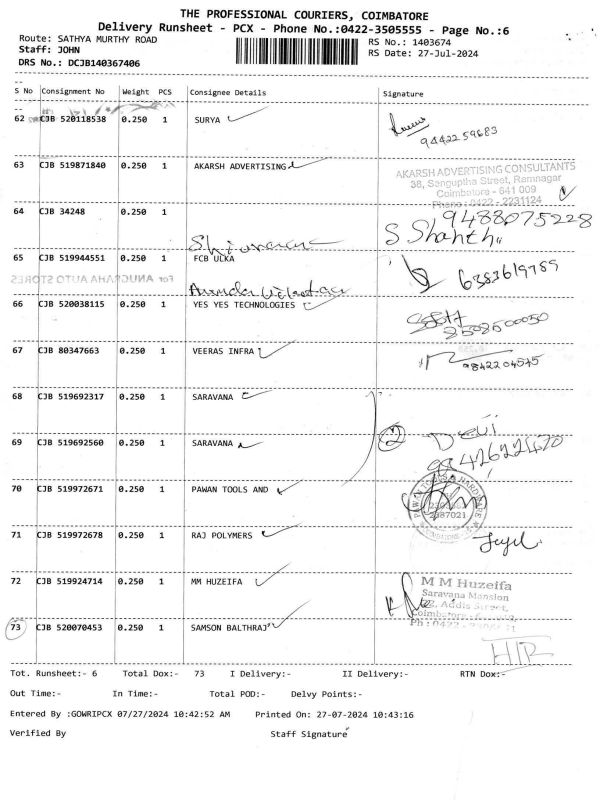 THE PROFESSIONAL COURIERS, COIMBATORE
Delivery Runsheet - PCX - Phone No.:0422-3505555 - Page No.:6
Route: SATHYA MURTHY ROAD
RS No.: 1403674
Staff: JOHN
RS Date: 27-Jul-2024
DRS No.: DCJB140367406
S No Consignment No Weight PCS Consignee Details Signature
62 CJB 520118538 0.250 1 SURYA
9442259683
63 CJB 519871840 0.250 1 AKARSH ADVERTISING
AKARSH ADVERTISING CONSULTANTS
38, Sanguptha Street, Ramnagar
Coimbatore - 641 009
Phone : 0422 - 2231124
64 CJB 34248 0.250 1
9488075228
S Shanthi
65 CJB 519944551 0.250 1 FCB ULKA
6383619789
For ANUGRAHA AUTO STORES
66 CJB 520038115 0.250 1 YES YES TECHNOLOGIES
67 CJB 80347663 0.250 1 VEERAS INFRA
9842204545
68 CJB 519692317 0.250 1 SARAVANA
69 CJB 519692560 0.250 1 SARAVANA
2 Devi
9842622470
70 CJB 519972671 0.250 1 PAWAN TOOLS AND
71 CJB 519972678 0.250 1 RAJ POLYMERS
72 CJB 519924714 0.250 1 MM HUZEIFA
M M Huzeifa
Saravana Mansion
Addis Street,
73 CJB 520070453 0.250 1 SAMSON BALTHRAJ
Tot. Runsheet:- 6 Total Dox:- 73 I Delivery:- II Delivery:- RTN Dox:-
Out Time:- In Time:- Total POD:- Delvy Points:-
Entered By :GOWRIPCX 07/27/2024 10:42:52 AM Printed On: 27-07-2024 10:43:16
Verified By Staff Signature